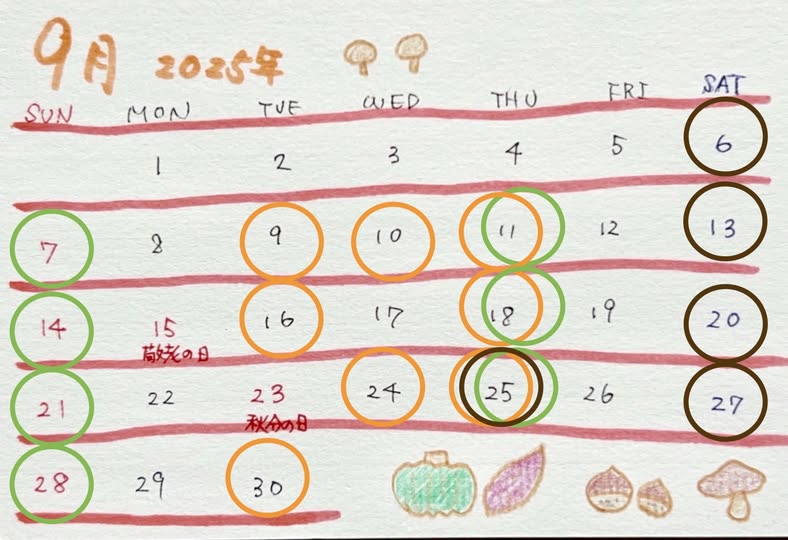 9月 2025年
SUN MON TUE WED THU FRI SAT
1 2 3 4 5 6
7 8 9 10 11 12 13
14 15 16 17 18 19 20
敬老の日
21 22 23 24 25 26 27
秋分の日
28 29 30